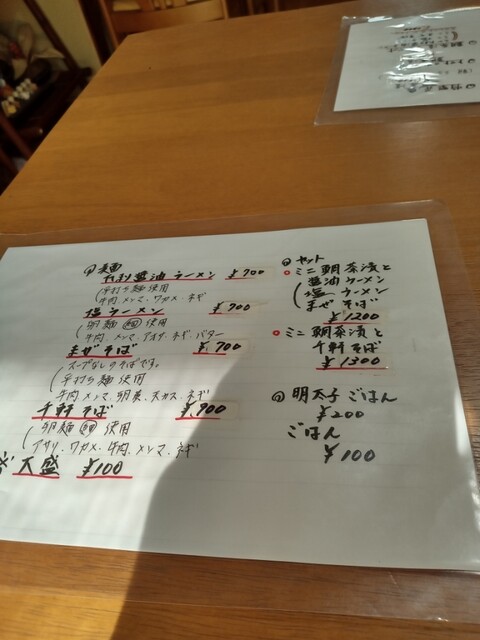 麺
醤油ラーメン ¥700
(平打ち麺使用
牛肉、メンマ、ワカメ、ネギ
塩ラーメン ¥700
麺 使用
牛肉、メンマ、アオサ、ネギ、バター
まぜそば ¥700
スープなしのそばです。
(平打ち麺使用
牛肉、メンマ、天カス、ネギ
千軒そば ¥900
麺 使用
アサリ、ワカメ、牛肉、メンマ、ネギ
※大盛 ¥100
セット
ミニ鯛茶漬と
醤油ラーメン
塩ラーメン
まぜそば
¥1200
ミニ鯛茶漬と
千軒そば
¥1300
明太子ごはん
¥200
ごはん
¥100